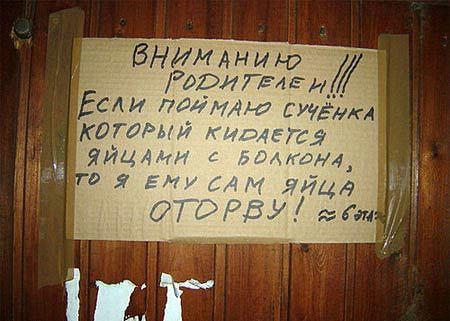 ВНИМАНИЮ
РОДИТЕЛЕЙ!!!
ЕСЛИ ПОЙМАЮ СУЧЁНКА
КОТОРЫЙ КИДАЕТСЯ
ЯЙЦАМИ С БОЛКОНА,
ТО Я ЕМУ САМ ЯЙЦА
ОТОРВУ! ≈ 6 ЭТАЖ